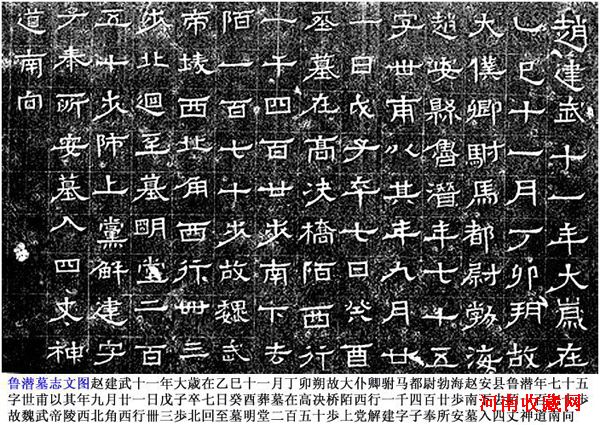 趙建武十一年大歲在
乙巳十一月丁卯朔故
大僕卿駙馬都尉勃海
趙安縣魯潛年七十五
字世甫以其年九月廿
一日戊子卒七日癸酉
葬墓在高決橋陌西行
一千四百廿步南下去
陌一百七十步故魏武
帝陵西北角西行卌三
步北迴至墓明堂二百
五十步師上黨解建字
子奉所安墓入四丈神
道南向
鲁潜墓志文图赵建武十一年大歳在乙巳十一月丁卯朔故大仆卿駙马都尉勃海赵安县鲁潜年七十五
字世甫以其年九月廿一日戊子卒七日癸酉葬墓在高决桥陌西行一千四百廿步南下去陌一百七十步
故魏武帝陵西北角西行卌三步北回至墓明堂二百五十步上党解建字子奉所安墓入四丈神道南向
河南收藏网